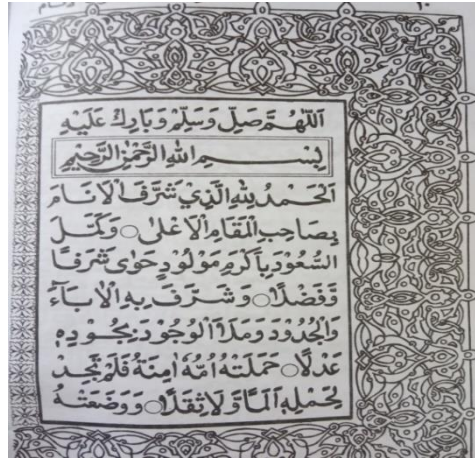 اَللّٰهُمَّ صَلِّ وَسَلِّمْ وَبَارِكْ عَلَيْهِ
بِسْمِ اللهِ الرَّحْمٰنِ الرَّحِيْمِ
اَلْحَمْدُ لِلّٰهِ الَّذِيْ شَرَّفَ الْاَنَامَ
بِصَاحِبِ الْمَقَامِ الْاَعْلٰى ○ وَكَمَّلَ
السُّعُوْدَ بِاَكْرَمِ مَوْلُوْدٍ حَوٰى شَرَفًا
وَفَضْلًا ○ وَشَرَّفَ بِهِ الْاٰبَاءَ
وَالْجُدُوْدَ وَمَلَأَ الْوُجُوْدَ بِجُوْدِهِ
عَدْلًا ○ حَمَلَتْهُ اُمُّهُ اٰمِنَةُ فَلَمْ تَجِدْ
لِحَمْلِهِ اَلَمًا وَلَا ثِقَلًا ○ وَوَضَعَتْهُ